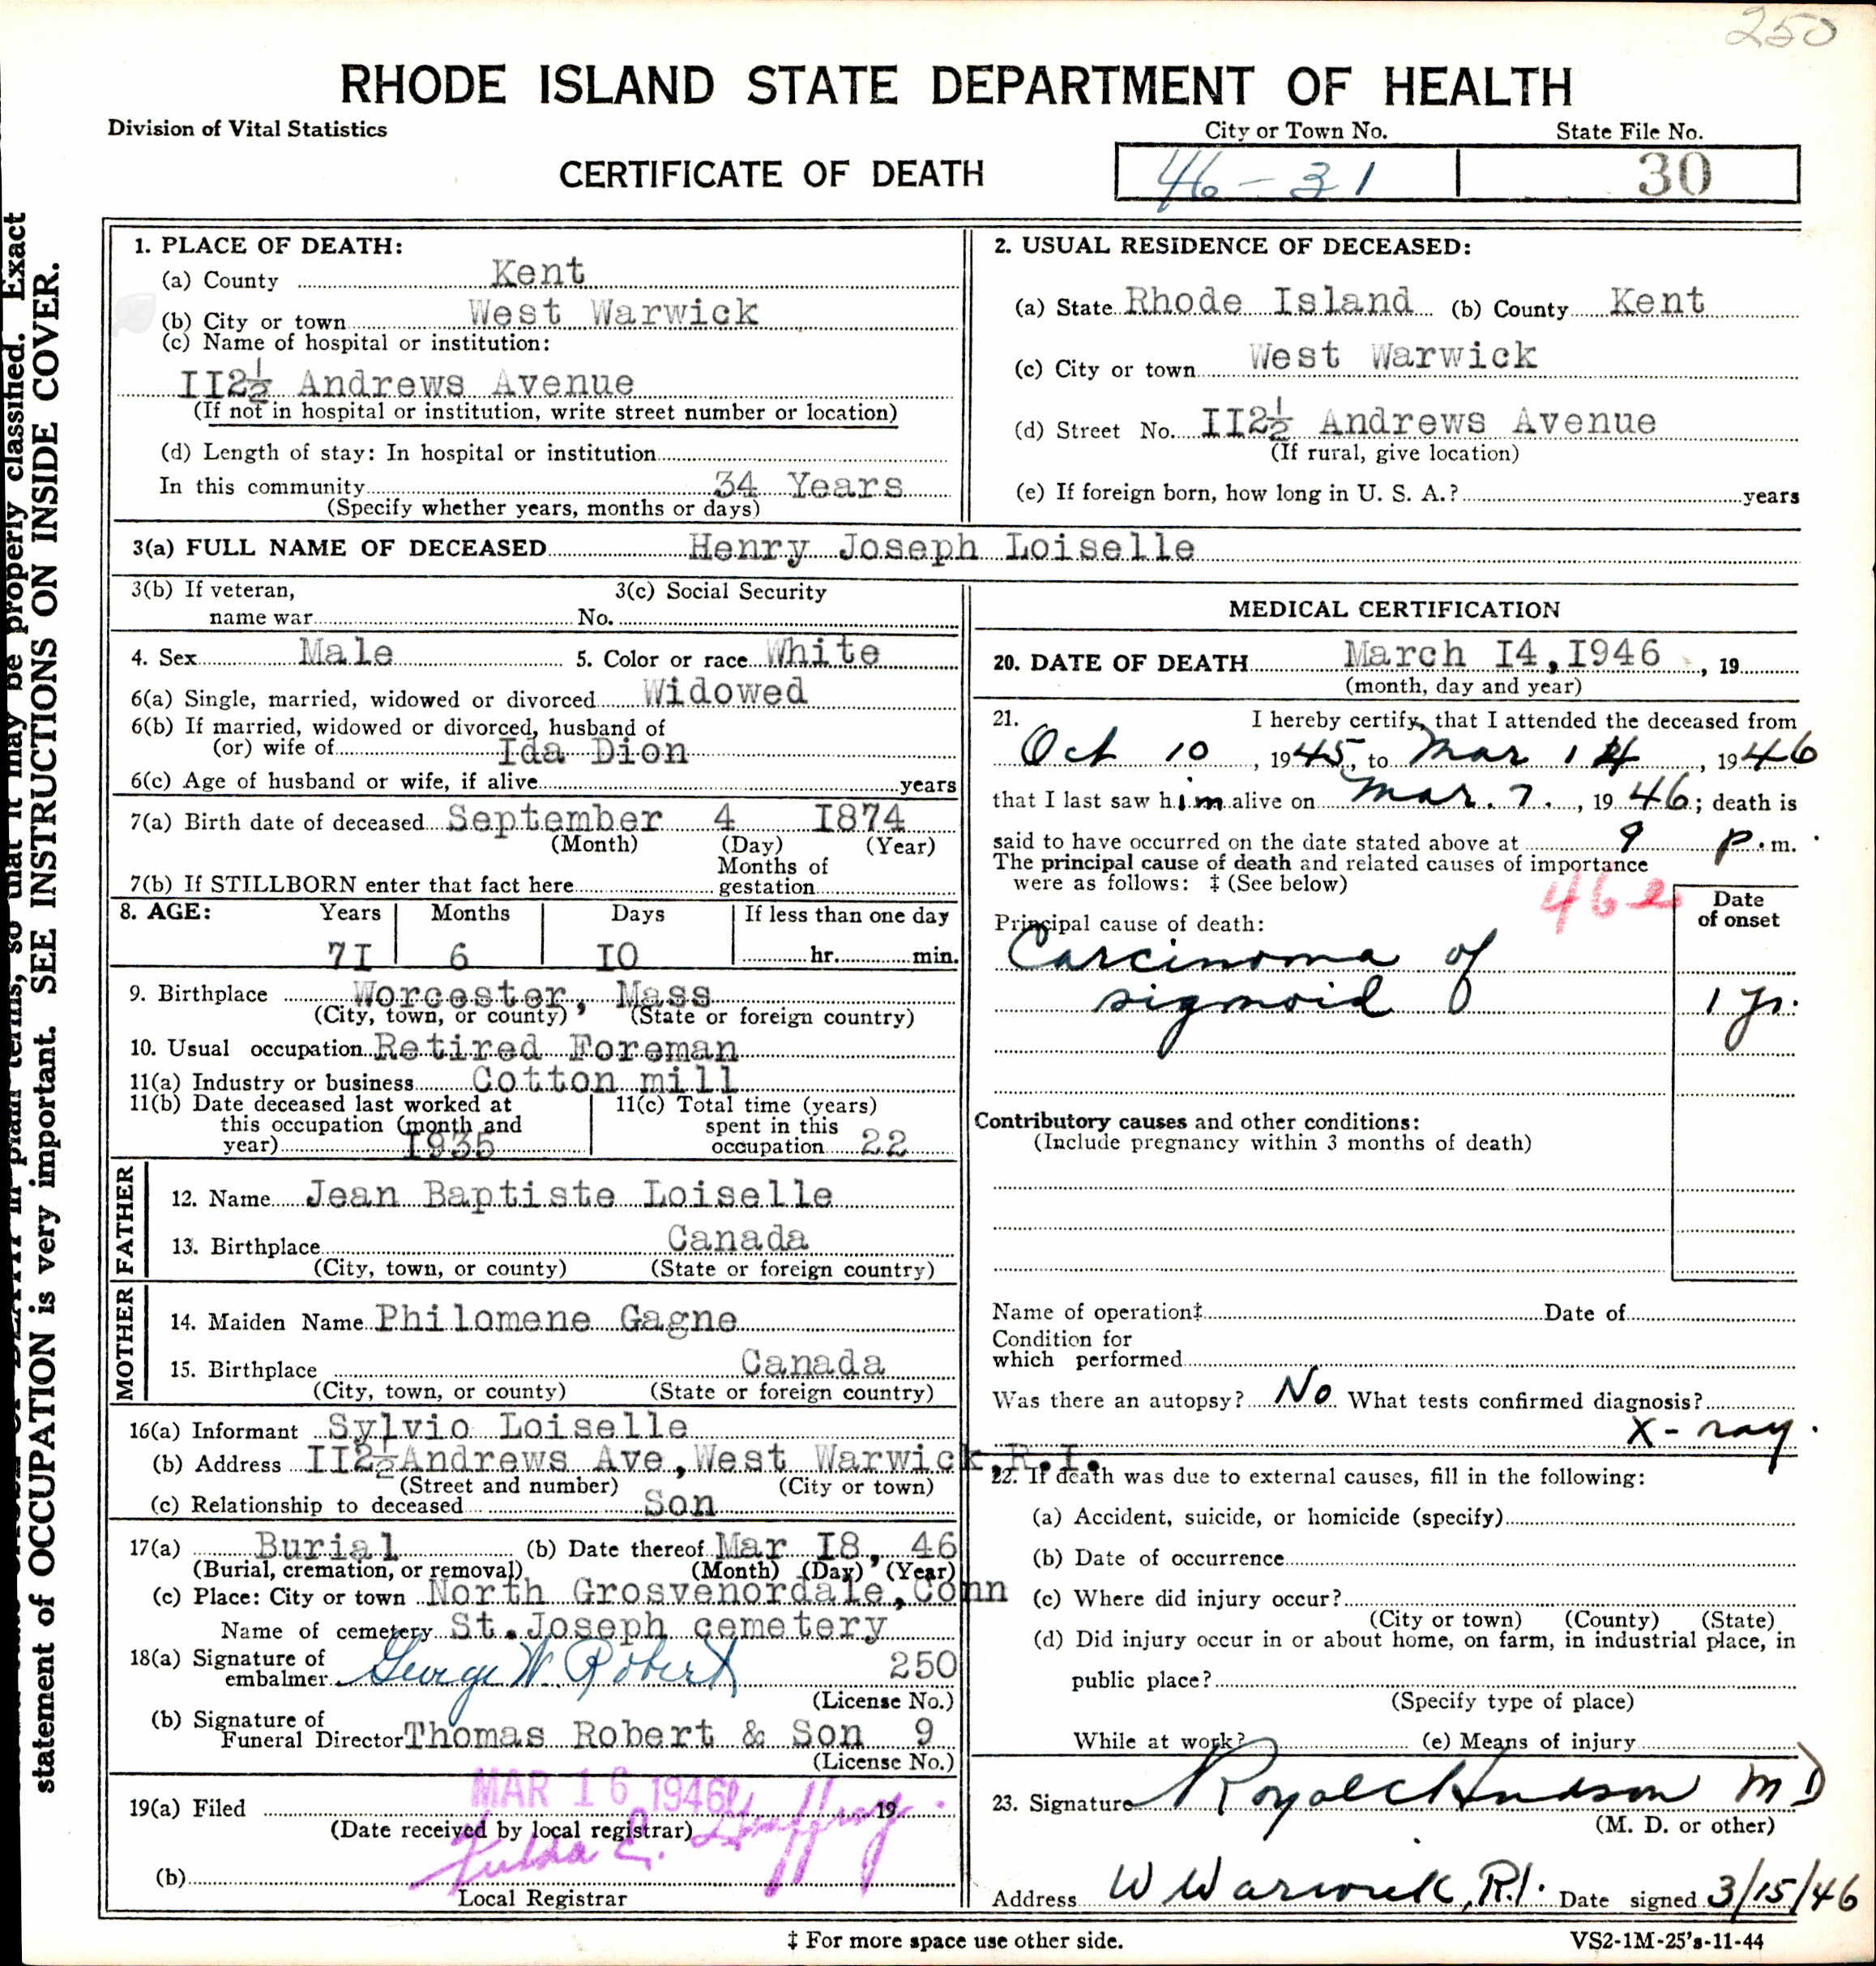 250
RHODE ISLAND STATE DEPARTMENT OF HEALTH
Division of Vital Statistics
City or Town No. State File No.
CERTIFICATE OF DEATH
46-31 30
1. PLACE OF DEATH:
(a) County Kent
(b) City or town West Warwick
(c) Name of hospital or institution:
II2½ Andrews Avenue
(If not in hospital or institution, write street number or location)
(d) Length of stay: In hospital or institution
In this community 34 Years
(Specify whether years, months or days)
2. USUAL RESIDENCE OF DECEASED:
(a) State Rhode Island (b) County Kent
(c) City or town West Warwick
(d) Street No. II2½ Andrews Avenue
(If rural, give location)
(e) If foreign born, how long in U. S. A.? years
3(a) FULL NAME OF DECEASED Henry Joseph Loiselle
3(b) If veteran, 3(c) Social Security
name war No.
4. Sex Male 5. Color or race White
6(a) Single, married, widowed or divorced Widowed
6(b) If married, widowed or divorced, husband of
(or) wife of Ida Dion
6(c) Age of husband or wife, if alive years
7(a) Birth date of deceased September 4 I874
(Month) (Day) (Year)
Months of
7(b) If STILLBORN enter that fact here gestation
8. AGE: Years Months Days If less than one day
7I 6 IO hr. min.
9. Birthplace Worcester, Mass
(City, town, or county) (State or foreign country)
10. Usual occupation Retired Foreman
11(a) Industry or business Cotton mill
11(b) Date deceased last worked at 11(c) Total time (years)
this occupation (month and spent in this
year) I935 occupation 22
FATHER
12. Name Jean Baptiste Loiselle
13. Birthplace Canada
(City, town, or county) (State or foreign country)
MOTHER
14. Maiden Name Philomene Gagne
15. Birthplace Canada
(City, town, or county) (State or foreign country)
16(a) Informant Sylvio Loiselle
(b) Address II2½ Andrews Ave, West Warwick, R.I.
(Street and number) (City or town)
(c) Relationship to deceased Son
17(a) Burial (b) Date thereof Mar I8, 46
(Burial, cremation, or removal) (Month) (Day) (Year)
(c) Place: City or town North Grosvenordale, Conn
Name of cemetery St. Joseph cemetery
18(a) Signature of
embalmer George W. Robert 250
(License No.)
(b) Signature of
Funeral Director Thomas Robert & Son 9
(License No.)
MAR 16 1946
19(a) Filed 19
(Date received by local registrar)
(b)
Local Registrar
MEDICAL CERTIFICATION
20. DATE OF DEATH March I4, I946, 19
(month, day and year)
21. I hereby certify, that I attended the deceased from
Oct 10, 1945, to Mar 14, 1946
that I last saw him alive on Mar. 7., 1946; death is
said to have occurred on the date stated above at 9 P.m.
The principal cause of death and related causes of importance
were as follows: ‡ (See below)
46e
Date
of onset
Principal cause of death:
Carcinoma of
sigmoid 1 yr.
Contributory causes and other conditions:
(Include pregnancy within 3 months of death)
Name of operation‡ Date of
Condition for
which performed
Was there an autopsy? No What tests confirmed diagnosis?
X-ray.
22. If death was due to external causes, fill in the following:
(a) Accident, suicide, or homicide (specify)
(b) Date of occurrence
(c) Where did injury occur?
(City or town) (County) (State)
(d) Did injury occur in or about home, on farm, in industrial place, in
public place?
(Specify type of place)
While at work? (e) Means of injury
23. Signature Royal C Hudson M D
(M. D. or other)
Address W Warwick, R.I. Date signed 3/15/46
‡ For more space use other side.
VS2-1M-25's-11-44
so that it may be properly classified. Exact
statement of OCCUPATION is very important. SEE INSTRUCTIONS ON INSIDE COVER.